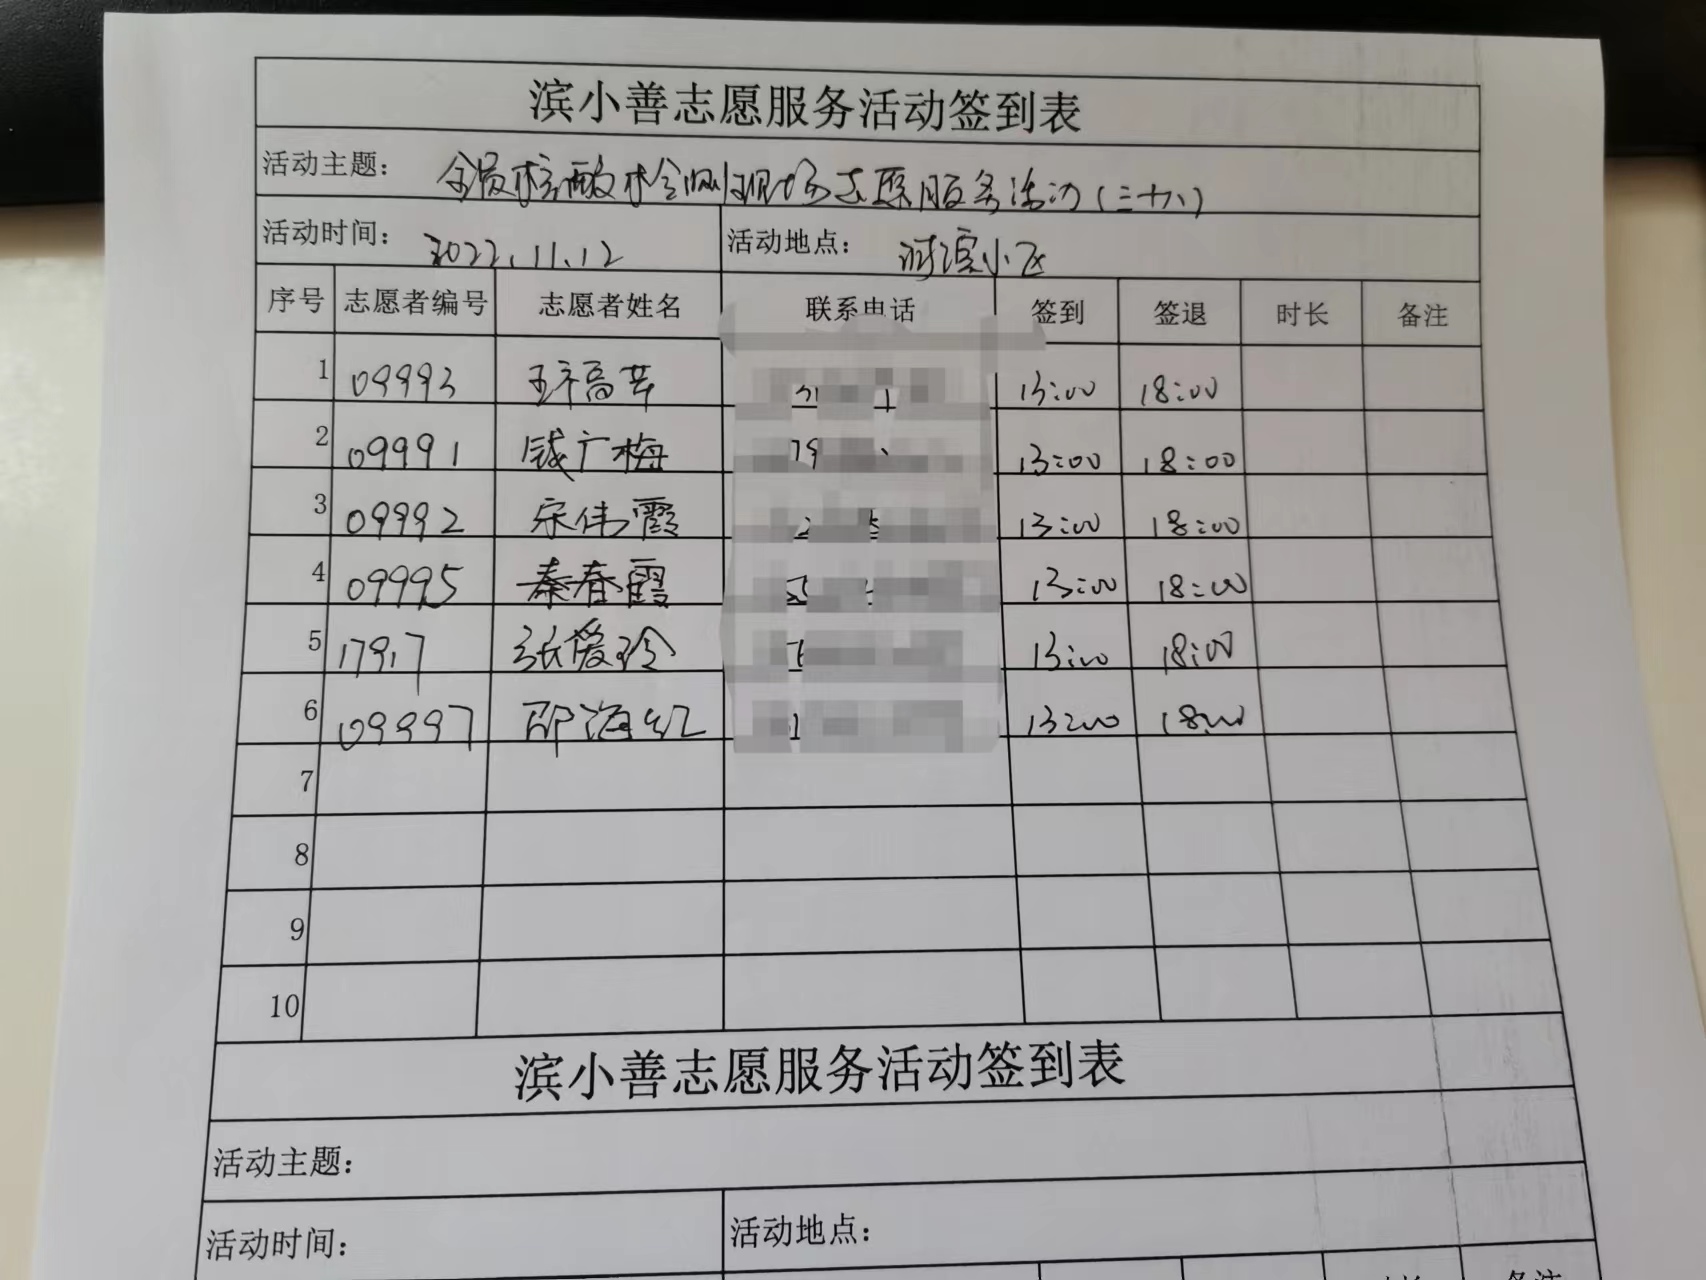 滨小善志愿服务活动签到表
活动主题： 全员核酸检测现场志愿服务活动（三十八）
活动时间： 2022.11.12 活动地点： 河滨小区
序号 志愿者编号 志愿者姓名 联系电话 签到 签退 时长 备注
1 09993 13:00 18:00
2 09991 钱广梅 13:00 18:00
3 09992 宋伟霞 13:00 18:00
4 09995 秦春霞 13:00 18:00
5 17917 张爱玲 13:00 18:00
6 09997 邵海红 13:00 18:00
7
8
9
10
滨小善志愿服务活动签到表
活动主题：
活动时间： 活动地点：